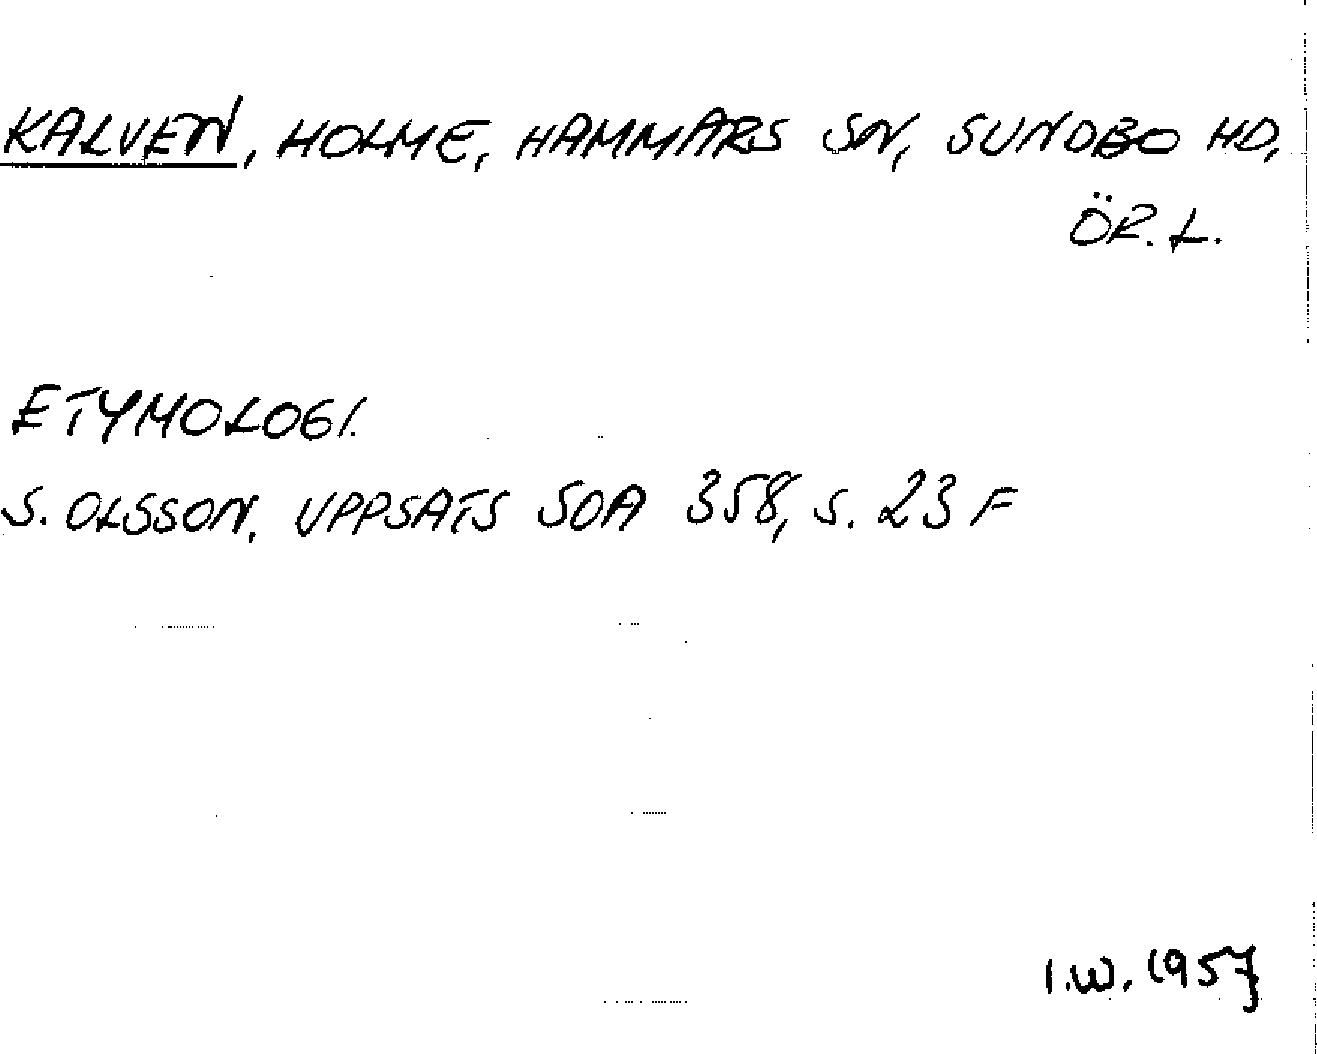 KALVEN, HOLME, HAMMARS SN, SUNDBO HD,
ÖR. L.
ETYMOLOGI.
S. OLSSON, UPPSATS SOA 358, S. 23 F
I.W. 1957